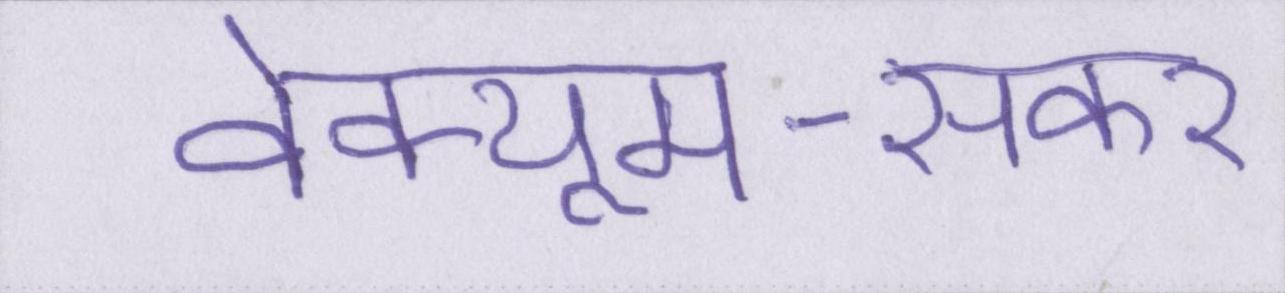 वेक्यूम-सकर